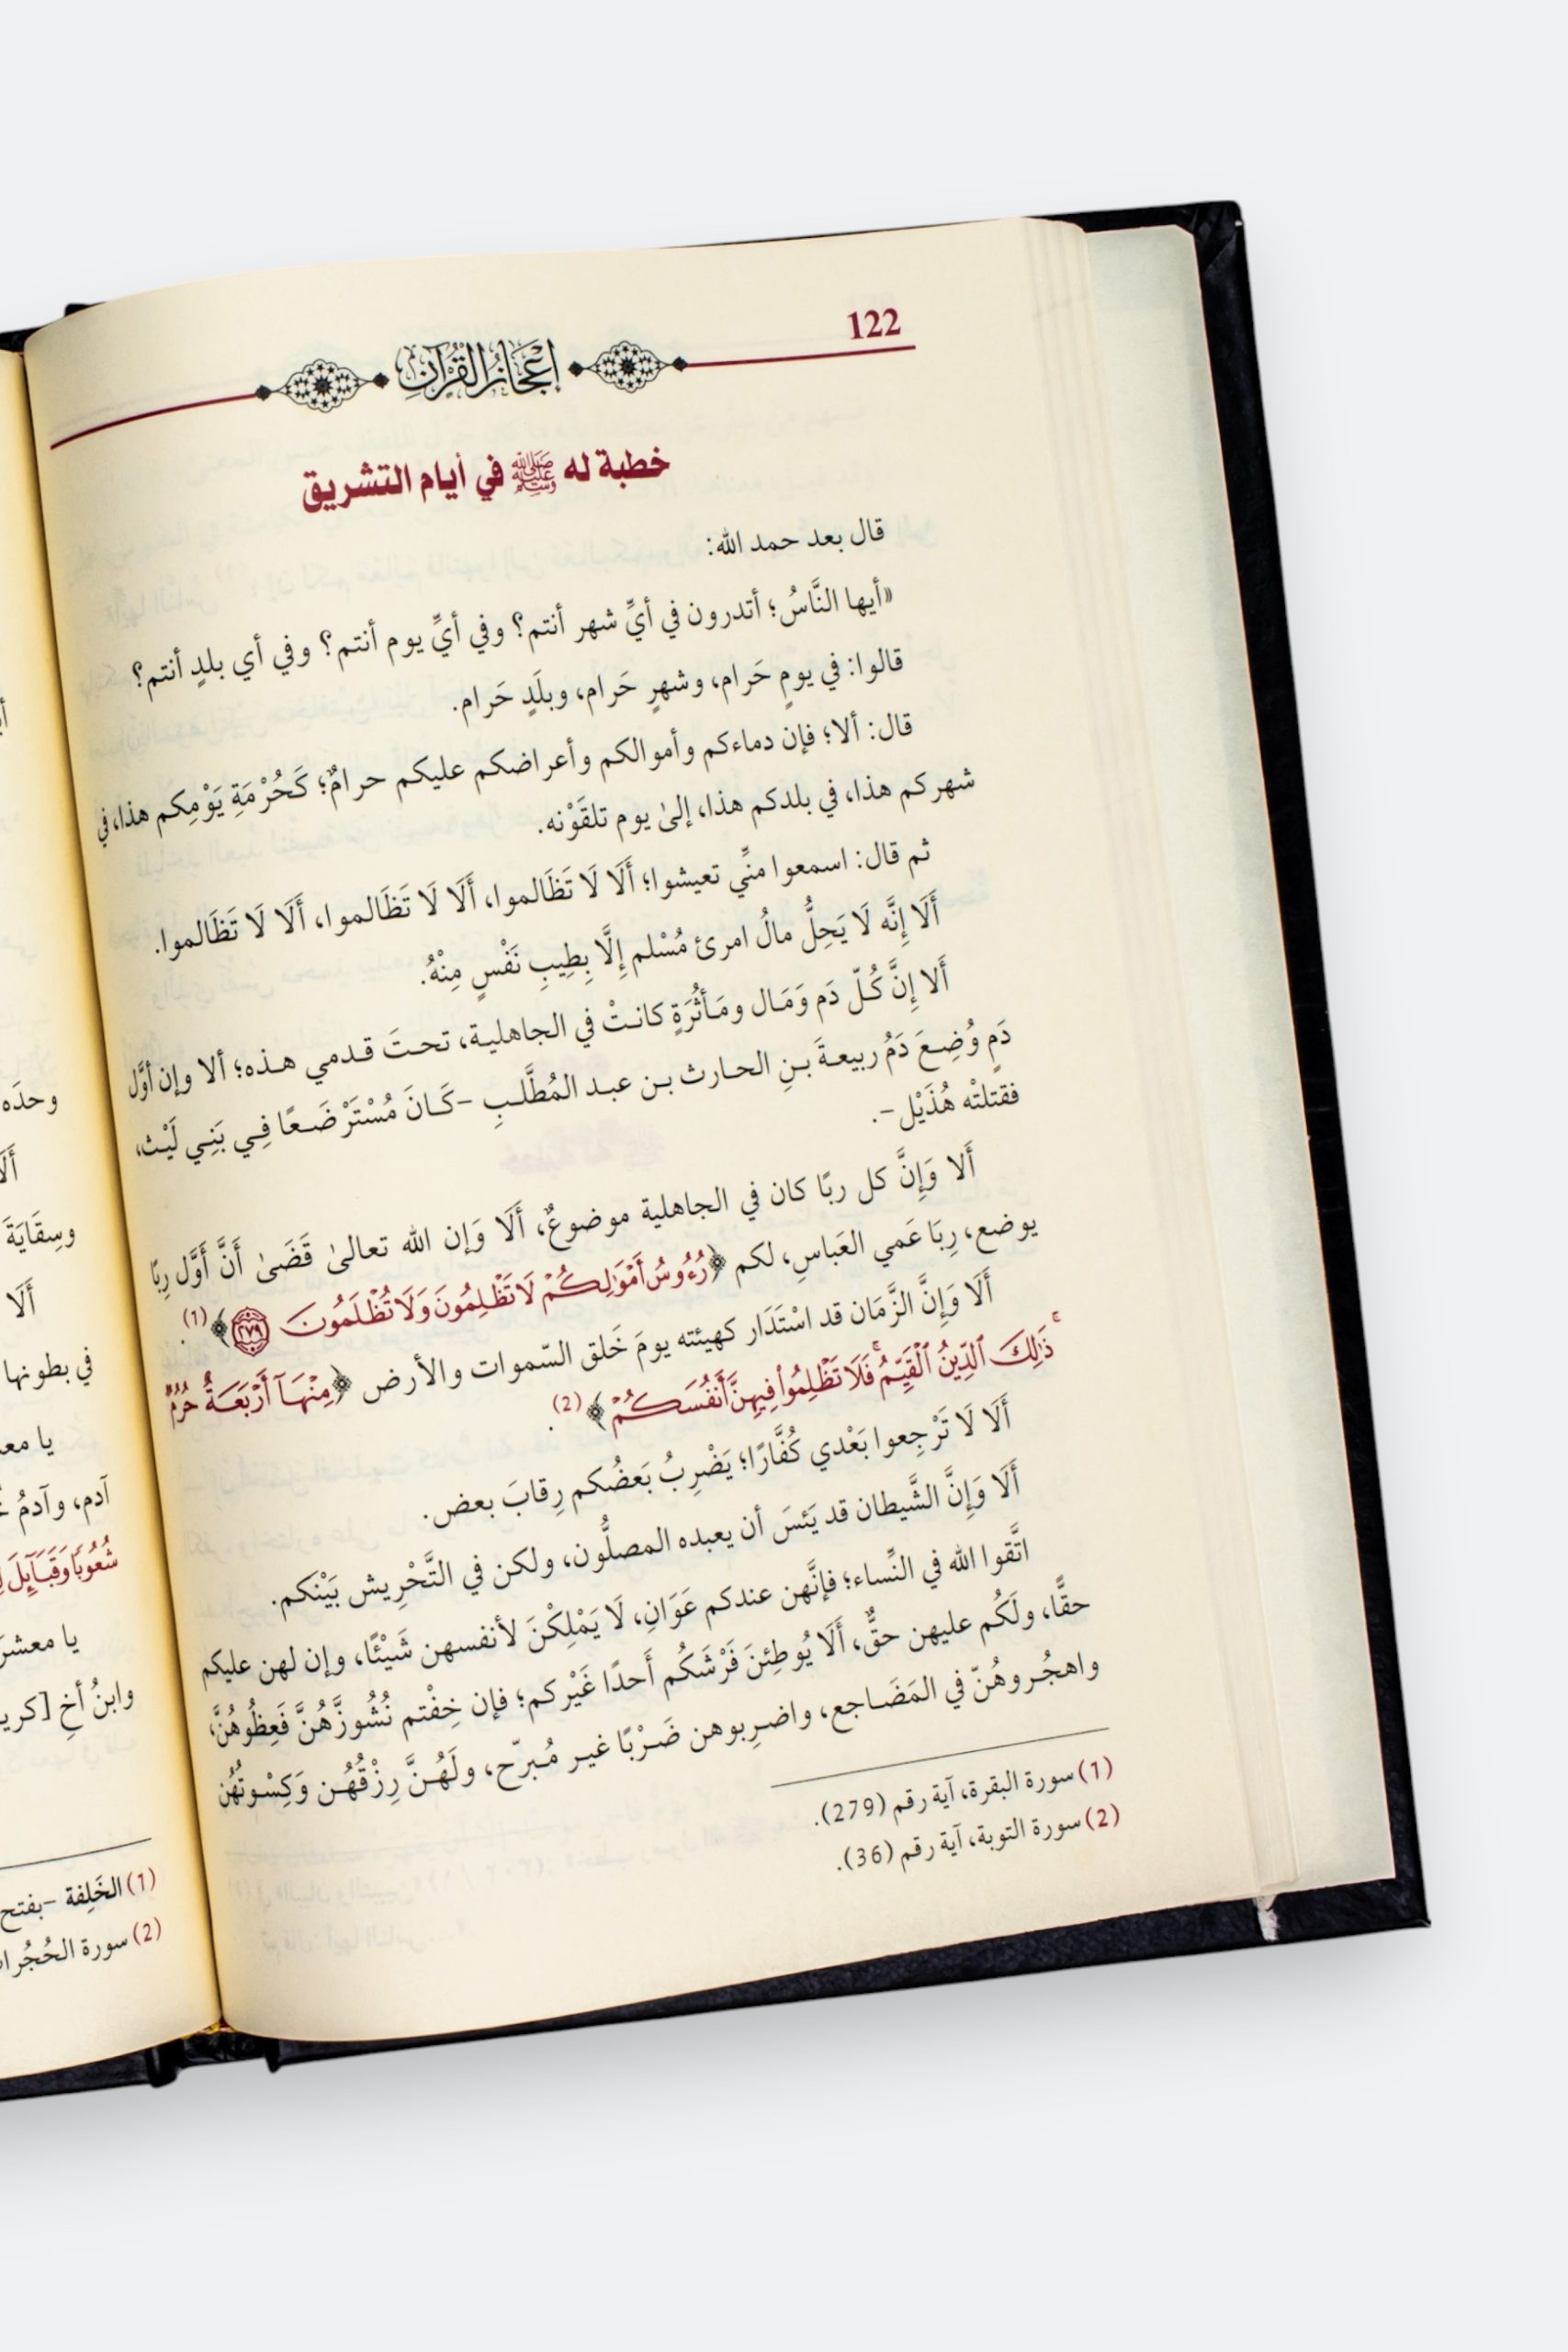 122
إعجاز القرآن
خطبة له ﷺ في أيام التشريق
قال بعد حمد الله:
«أيها النَّاسُ؛ أتدرون في أيِّ شهر أنتم؟ وفي أيِّ يوم أنتم؟ وفي أي بلدٍ أنتم؟
قالوا: في يومٍ حَرام، وشهرٍ حَرام، وبلَدٍ حَرام.
قال: ألا؛ فإن دماءكم وأموالكم وأعراضكم عليكم حرامٌ؛ كَحُرْمَةِ يَوْمِكم هذا، في
شهركم هذا، في بلدكم هذا، إلىٰ يوم تلقَوْنه.
ثم قال: اسمعوا منِّي تعيشوا؛ أَلَا لَا تَظَالموا، أَلَا لَا تَظَالموا، أَلَا لَا تَظَالموا.
أَلَا إِنَّه لَا يَحِلُّ مالُ امرئ مُسْلم إِلَّا بِطِيبِ نَفْسٍ مِنْهُ.
أَلا إِنَّ كُلّ دَم وَمَال ومَأثُرَةٍ كانتْ في الجاهلية، تحتَ قدمي هذه؛ ألا وإن أوَّل
دَمٍ وُضِعَ دَمُ ربيعةَ بنِ الحارث بن عبد المُطَّلبِ -كَانَ مُسْتَرْضَعًا فِي بَنِي لَيْث،
فقتلتْه هُذَيْل-.
أَلا وَإِنَّ كل ربًا كان في الجاهلية موضوعٌ، أَلَا وَإن الله تعالىٰ قَضَىٰ أَنَّ أَوَّل رِبًا
يوضع، رِبَا عَمي العَباسِ، لكم ﴿رُءُوسُ أَمْوَٰلِكُمْ لَا تَظْلِمُونَ وَلَا تُظْلَمُونَ ٢٧٩﴾(1).
أَلَا وَإِنَّ الزَّمَان قد اسْتَدَار كهيئته يومَ خَلق السّموات والأرض ﴿مِنْهَآ أَرْبَعَةٌ حُرُمٌ
ذَٰلِكَ ٱلدِّينُ ٱلْقَيِّمُ ۚ فَلَا تَظْلِمُوا۟ فِيهِنَّ أَنفُسَكُمْ﴾(2).
أَلَا لَا تَرْجِعوا بَعْدي كُفَّارًا؛ يَضْرِبُ بَعضُكم رِقابَ بعض.
أَلَا وَإِنَّ الشَّيطان قد يَئسَ أن يعبده المصلُّون، ولكن في التَّحْرِيش بَيْنكم.
اتَّقوا الله في النِّساء؛ فإنَّهن عندكم عَوَانِ، لَا يَمْلِكْنَ لأنفسهن شَيْئًا، وإن لهن عليكم
حقًّا، ولَكُم عليهن حقٌّ، أَلَا يُوطِئنَ فَرْشَكُم أَحدًا غَيْركم؛ فإن خِفْتم نُشُوزَّهُنَّ فَعِظُوهُنَّ،
واهجُروهُنّ في المَضَاجع، واضرِبوهن ضَرْبًا غير مُبرّح، ولَهُنَّ رِزْقُهُن وَكِسْوتُهُن
(1) سورة البقرة، آية رقم (279).
(2) سورة التوبة، آية رقم (36).
وحدَه
وسِقَايَةَ
أَلَا
في بطونها
يا
آدم، وآدمُ
شُعُوبًا وَقَبَآئِلَ
يا معشرَ
وابنُ أخِ
(1) الخَلِفة -بفتح
(2) سورة